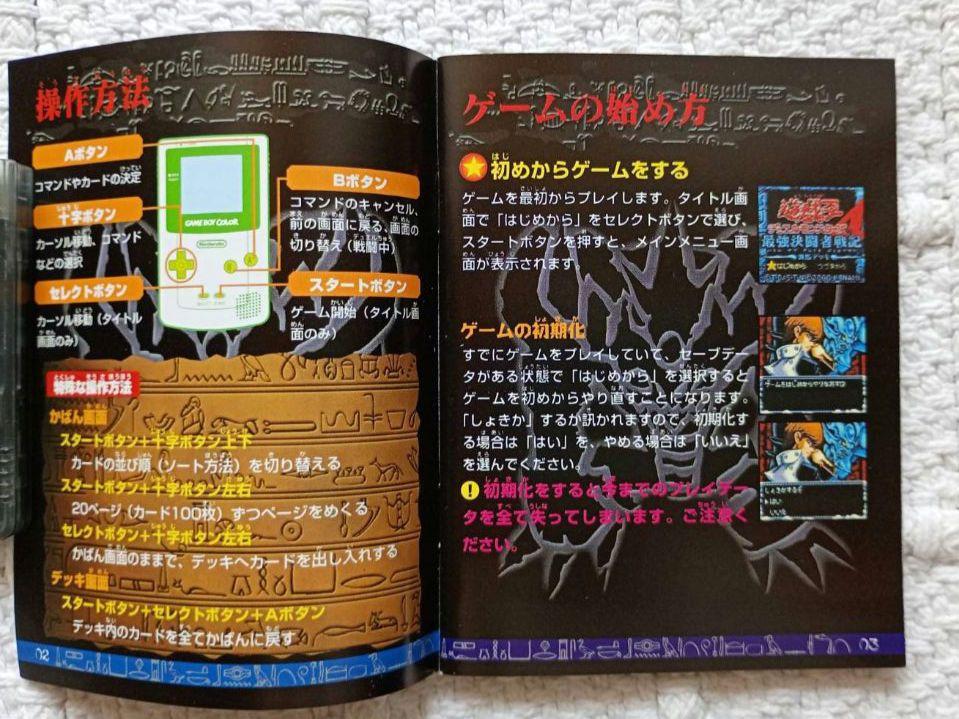 操作方法
Aボタン
コマンドやカードの決定
十字ボタン
カーソル移動、コマンド
などの選択
セレクトボタン
カーソル移動(タイトル
画面のみ)
GAME BOY COLOR
Nintendo
Bボタン
コマンドのキャンセル、
前の画面に戻る、画面の
切り替え(戦闘中)
スタートボタン
ゲーム開始(タイトル画
面のみ)
特殊な操作方法
かばん画面
スタートボタン+十字ボタン上下
カードの並び順(ソート方法)を切り替える
スタートボタン+十字ボタン左右
20ページ(カード100枚)ずつページをめくる
セレクトボタン+十字ボタン左右
かばん画面のままで、デッキへカードを出し入れする
デッキ画面
スタートボタン+セレクトボタン+Aボタン
デッキ内のカードを全てかばんに戻す
02
ゲームの始め方
初めからゲームをする
ゲームを最初からプレイします。タイトル画
面で「はじめから」をセレクトボタンで選び、
スタートボタンを押すと、メインメニュー画
面が表示されます。
遊戯王
デュエルモンスターズ
4
最強決闘者戦記
はじめから つづきから
ゲームの初期化
すでにゲームをプレイしていて、セーブデー
タがある状態で「はじめから」を選択すると
ゲームを初めからやり直すことになります。
「しょきか」するか訊かれますので、初期化す
る場合は「はい」を、やめる場合は「いいえ」
を選んでください。
初期化をすると今までのプレイデー
タを全て失ってしまいます。ご注意く
ださい。
ゲームをはじめからやりなおすの
しょきかする?
はい
いいえ
03